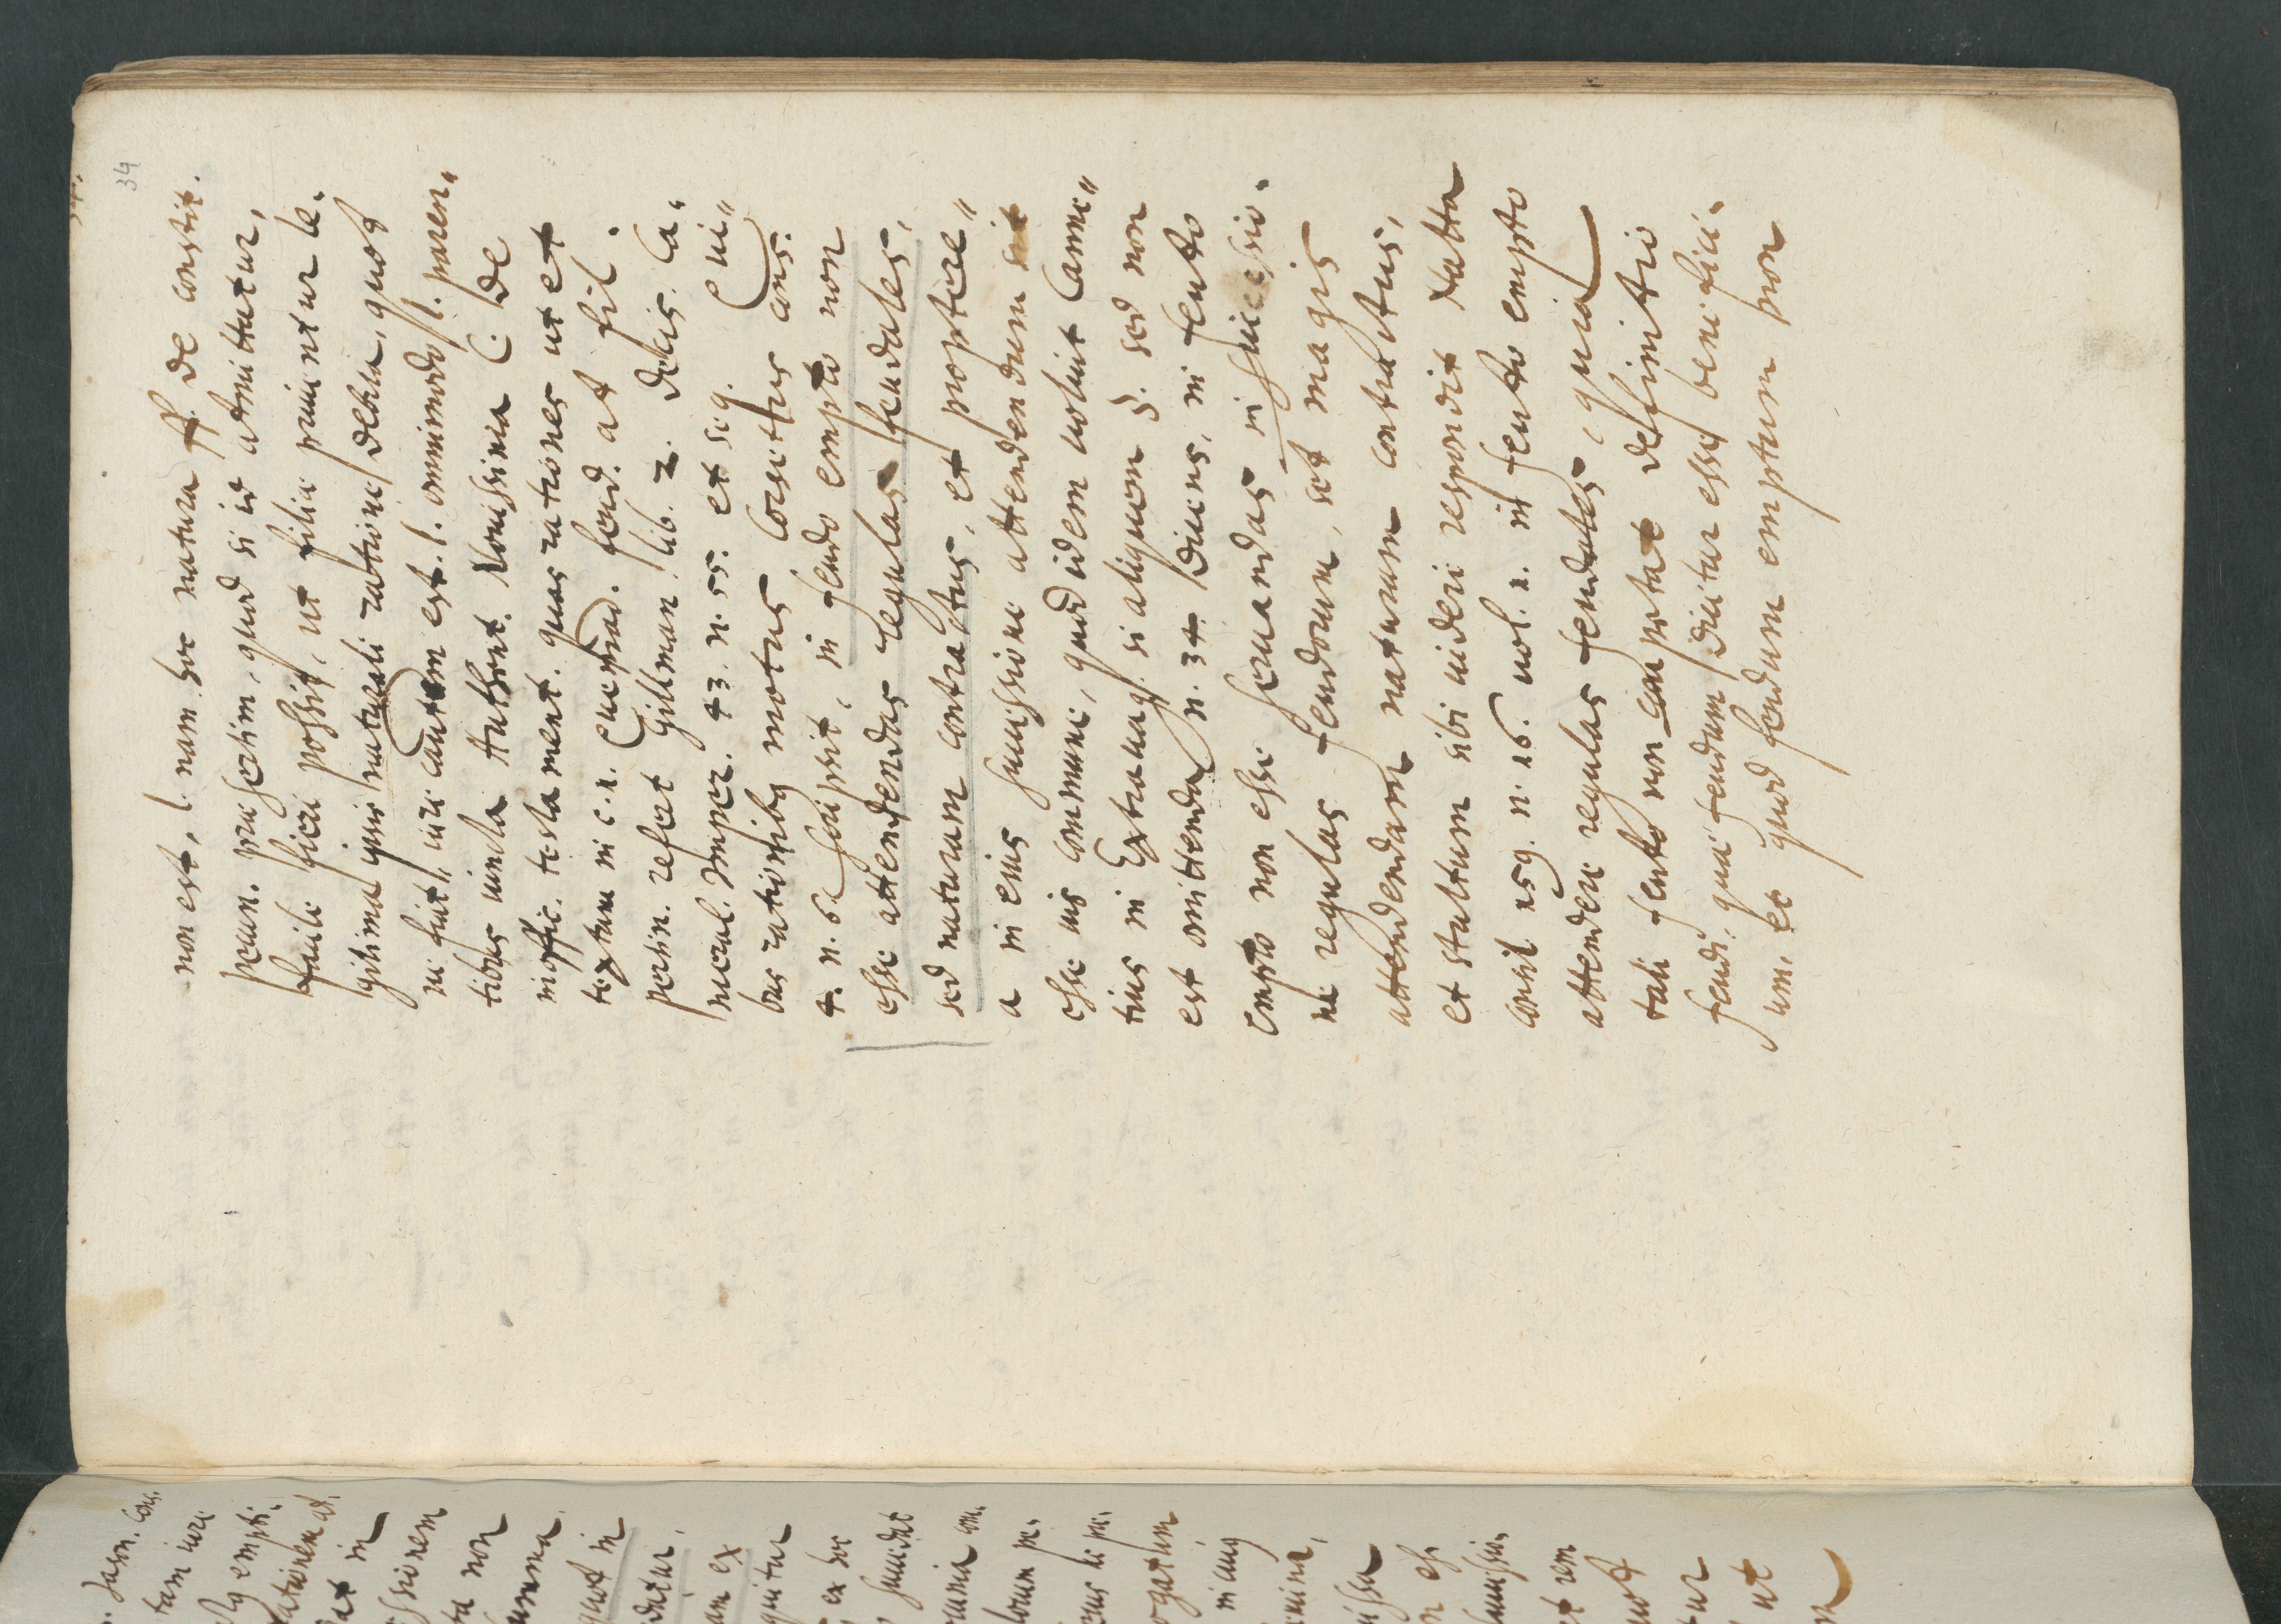 34
non est, l. nam hoc natura ff. de constit.
pecun. praesertim, quod si id admittatur,
facile fieri possit, ut filiae priuentur le-
gitima ipsis naturali ratione debita, quod
ne fiat, iure cautum est. l. omnimodo l. paren"
tibus iuncta Authent. Nouissima C. de
inoffic. testament. quas rationes ut et
textum in c. 1. feud. at fil.
pertin. refert Gillman lib. 2. decis. Ca"
meral. Imper. 43. n. 55. et seq. Qui"
bus rationibus motus Corsettus cons.
4. n. 6. scripsit, in feudo empto non
esse attendendas regulas feudales,
sed naturam contractus, et proptere"
a in eius successione attendendum sit
esse ius commune, quod idem uoluit Camu"
tius in Extrauag. si aliquem §. sed non
est omittenda n. 34. dicens, in feudo
empto non esse seruandas in successio-
ne regulas feudorum, sed magis
attendendam naturam contractus,
et stultum sibi uideri respondit Natta
consil. 159. n. 16. uol. 1. in feudo empto
attendere regulas feudales, quia
tali feudo non competat definitio
feudi, quae feudum dicitur esse benefici-
um, et quod feudum emptum non
Jason. cons.
tam iure
empti-
in
ssionem
ta non
quod in
datur,
am ex
quitur
ex hoc
ogatum
ut